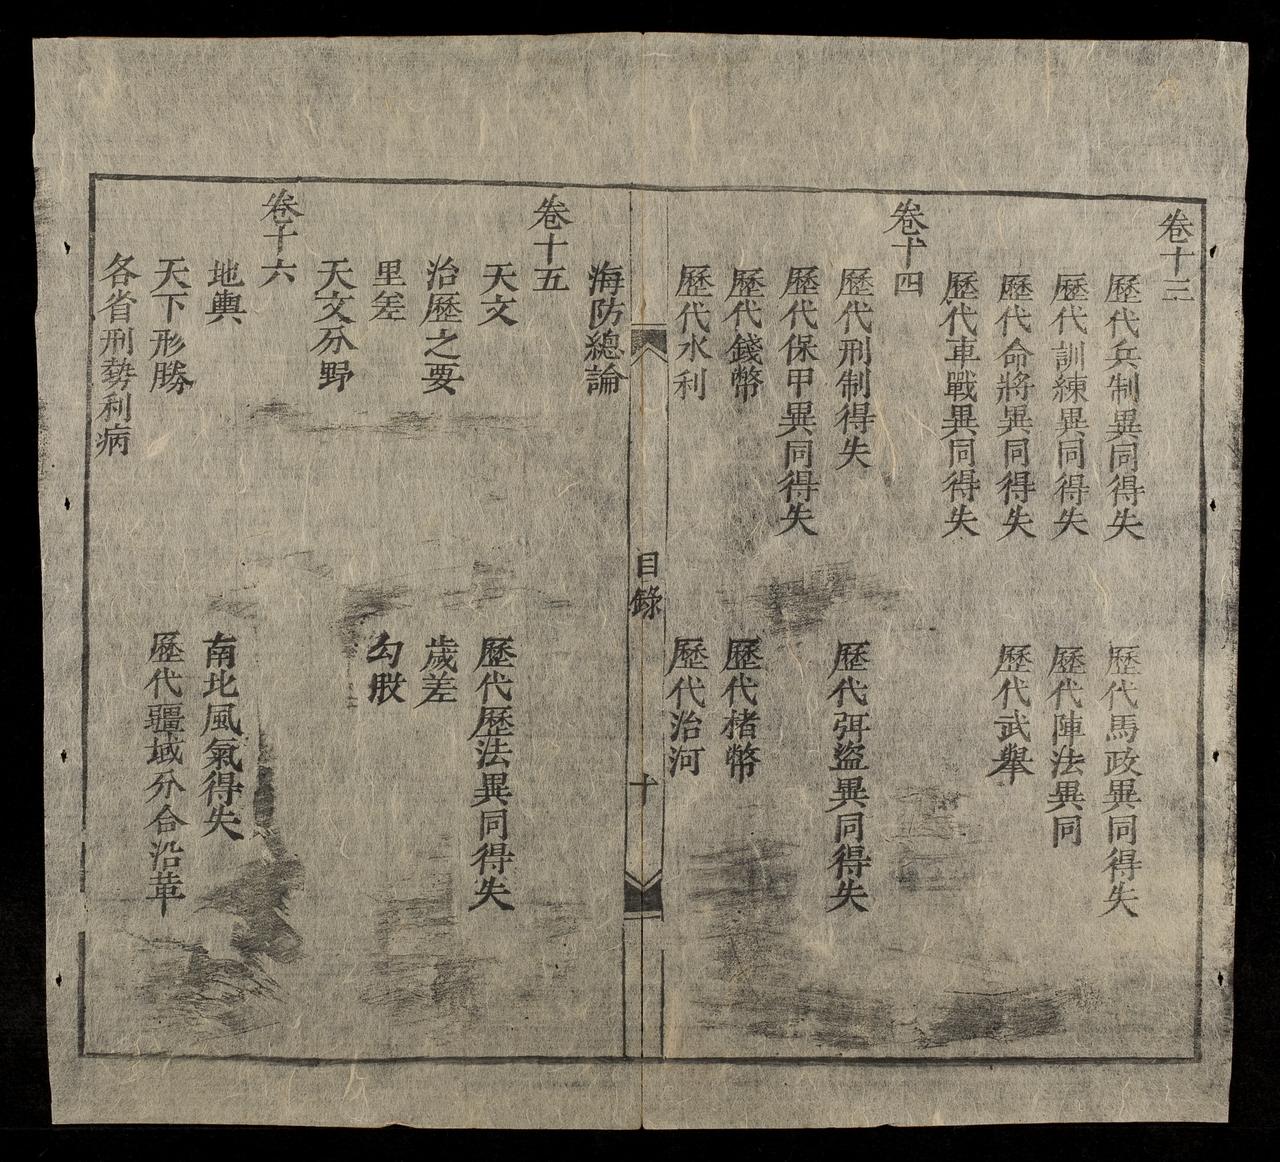 卷十三
歷代兵制異同得失
歷代馬政異同得失
歷代訓練異同得失
歷代陣法異同
歷代命將異同得失
歷代武舉
歷代車戰異同得失
卷十四
歷代刑制得失
歷代弭盜異同得失
歷代保甲異同得失
歷代錢幣
歷代楮幣
歷代水利
歷代治河
目錄
十
海防總論
卷十五
天文
歷代歷法異同得失
治歷之要
歲差
里差
勾股
天文分野
卷十六
地輿
南北風氣得失
天下形勝
歷代疆域分合沿革
各省刑勢利病